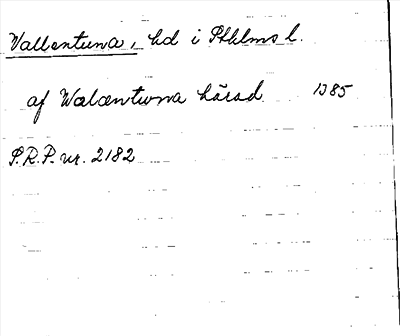 Vallentuna, hd i Sthlms l.
af Walæntuna hærad 1385
S.R.P. nr. 2182